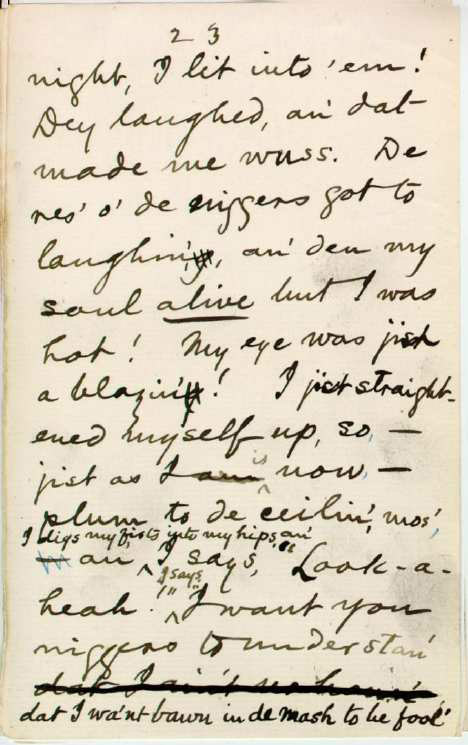 23
night, I lit into 'em!
Dey laughed, an' dat
made me wuss. De
res' o' de niggers got to
laughin', an' den my
soul alive but I was
hot! My eye was jist
a blazin'! I jist straight-
ened myself up, so, —
jist as I is now, —
plum to de ceilin', mos',
I digs my fists into my hips, an'
an' I says, "Look-a-
I says,
heah!" "I want you
niggers to understan'
dat I wa'nt bawn in de mash to be fool'